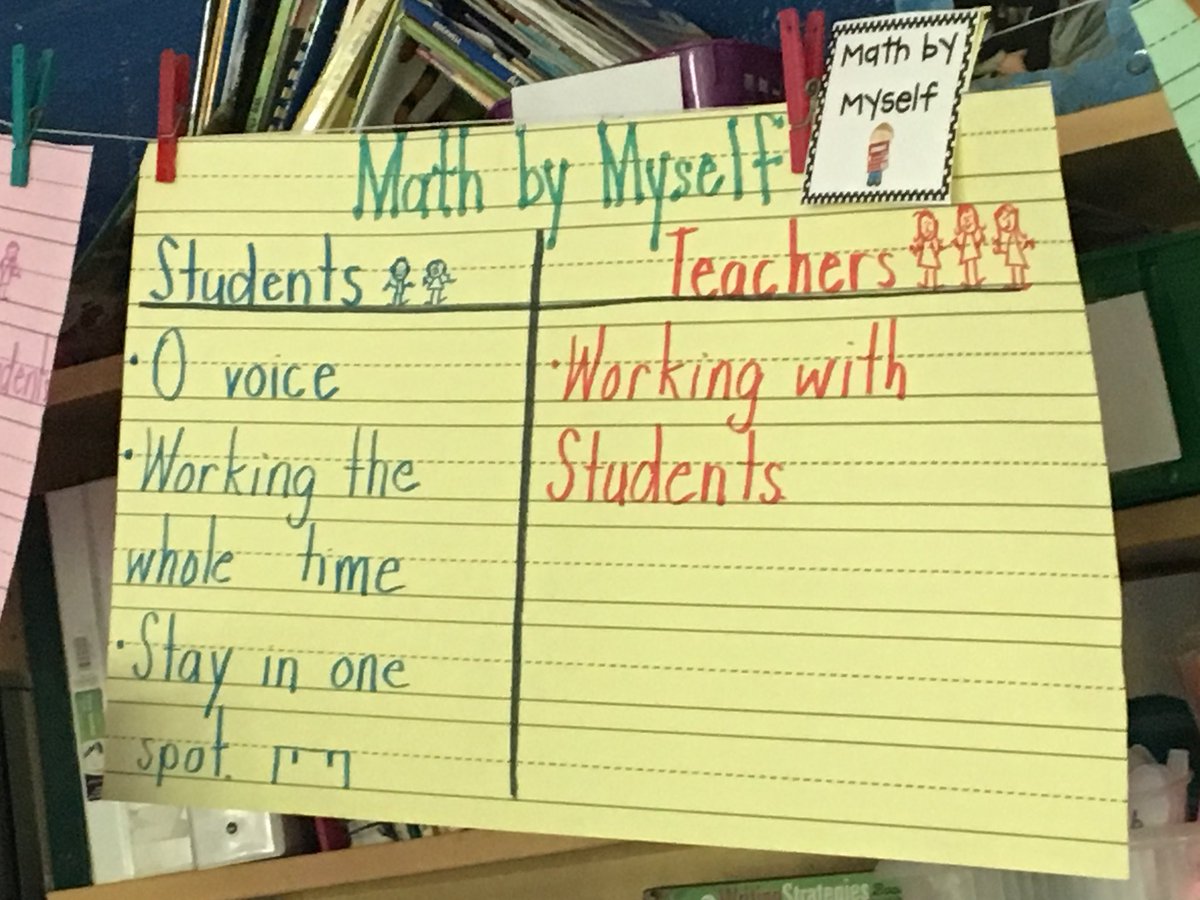 Math by
Myself
Math by Myself
Students
Teachers
• 0 voice
• Working the
whole time
• Stay in one
spot.
• Working with
Students
dents
Strategies